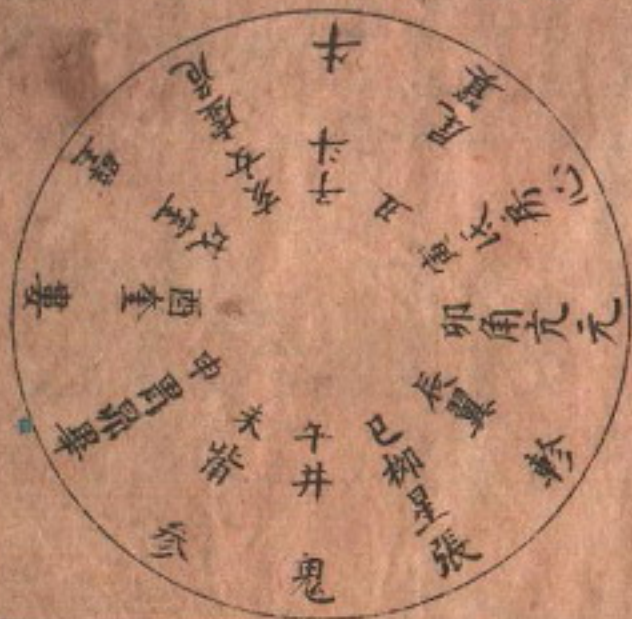 子斗牛
丑尾箕
寅氐房心
卯角亢元
辰翼軫
巳柳星張
午井鬼
未觜參
申胃昴畢
酉奎婁
戌室壁
亥女虛危